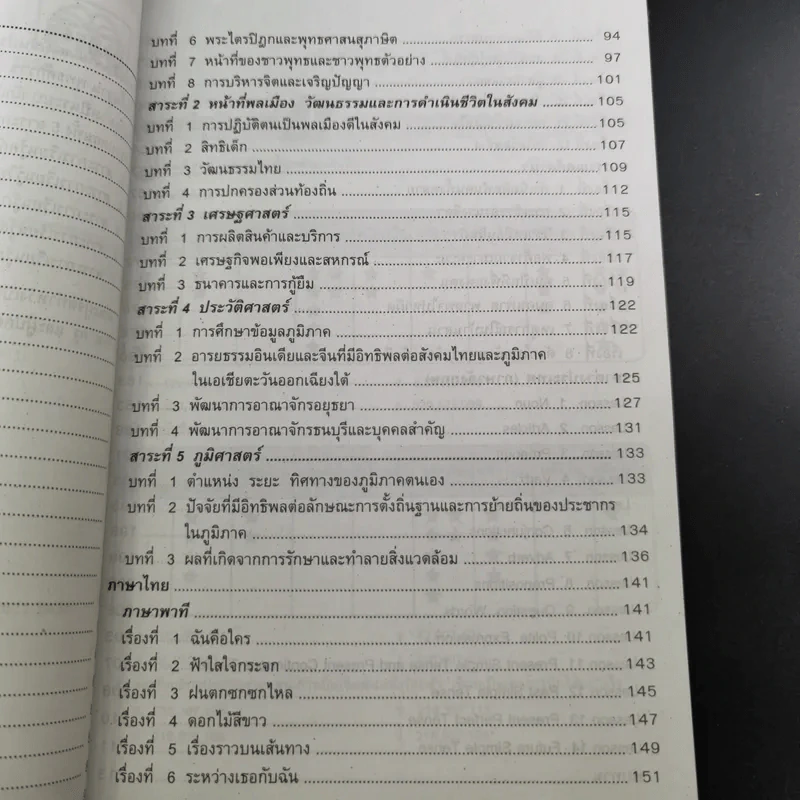 บทที่ 6 พระไตรปิฎกและพุทธศาสนสุภาษิต 94
บทที่ 7 หน้าที่ของชาวพุทธและชาวพุทธตัวอย่าง 97
บทที่ 8 การบริหารจิตและเจริญปัญญา 101
สาระที่ 2 หน้าที่พลเมือง วัฒนธรรมและการดำเนินชีวิตในสังคม 105
บทที่ 1 การปฏิบัติตนเป็นพลเมืองดีในสังคม 105
บทที่ 2 สิทธิเด็ก 107
บทที่ 3 วัฒนธรรมไทย 109
บทที่ 4 การปกครองส่วนท้องถิ่น 112
สาระที่ 3 เศรษฐศาสตร์ 115
บทที่ 1 การผลิตสินค้าและบริการ 115
บทที่ 2 เศรษฐกิจพอเพียงและสหกรณ์ 117
บทที่ 3 ธนาคารและการกู้ยืม 119
สาระที่ 4 ประวัติศาสตร์ 122
บทที่ 1 การศึกษาข้อมูลภูมิภาค 122
บทที่ 2 อารยธรรมอินเดียและจีนที่มีอิทธิพลต่อสังคมไทยและภูมิภาค
ในเอเชียตะวันออกเฉียงใต้ 125
บทที่ 3 พัฒนาการอาณาจักรอยุธยา 127
บทที่ 4 พัฒนาการอาณาจักรธนบุรีและบุคคลสำคัญ 131
สาระที่ 5 ภูมิศาสตร์ 133
บทที่ 1 ตำแหน่ง ระยะ ทิศทางของภูมิภาคตนเอง 133
บทที่ 2 ปัจจัยที่มีอิทธิพลต่อลักษณะการตั้งถิ่นฐานและการย้ายถิ่นของประชากร
ในภูมิภาค 134
บทที่ 3 ผลที่เกิดจากการรักษาและทำลายสิ่งแวดล้อม 136
ภาษาไทย 141
ภาษาพาที 141
เรื่องที่ 1 ฉันคือใคร 141
เรื่องที่ 2 ฟ้าใสใจกระจก 143
เรื่องที่ 3 ฝนตกซกซกไหล 145
เรื่องที่ 4 ดอกไม้สีขาว 147
เรื่องที่ 5 เรื่องราวบนเส้นทาง 149
เรื่องที่ 6 ระหว่างเธอกับฉัน 151